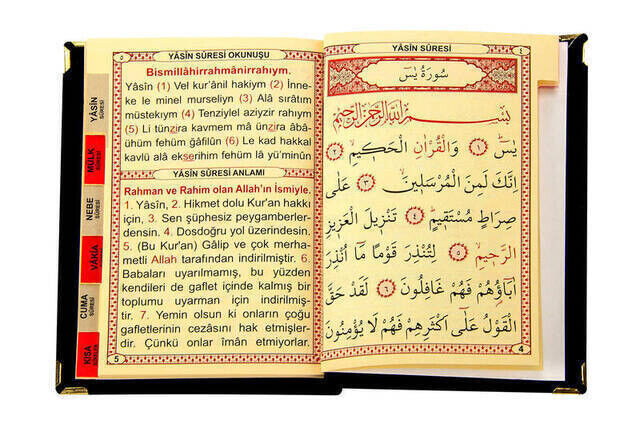 YÂSİN SÛRESİ
MÜLK
SÛRESİ
NEBE
SÛRESİ
VÂKIA
CUMA
SÛRESİ
KISA
SÛRELER
٥ YÂSİN SÛRESİ OKUNUŞU
Bismillâhirrahmânirrahıym.
Yâsîn (1) Vel kur'ânil hakiym (2) İnne-
ke le minel murseliyn (3) Alâ sırâtım
müstekıym (4) Tenziylel aziyzir rahıym
(5) Li tünzira kavmem mâ ünzira âbâ-
ühüm fehüm ğâfilûn (6) Le kad hakkal
kavlü alâ ekserihim fehüm lâ yü'minûn
YÂSİN SÛRESİ ANLAMI
Rahman ve Rahim olan Allah'ın İsmiyle.
1. Yâsîn, 2. Hikmet dolu Kur'an hakkı
için, 3. Sen şüphesiz peygamberler-
densin. 4. Dosdoğru yol üzerindesin.
5. (Bu Kur'an) Gâlip ve çok merha-
metli Allah tarafından indirilmiştir. 6.
Babaları uyarılmamış, bu yüzden
kendileri de gaflet içinde kalmış bir
toplumu uyarman için indirilmiş-
tir. 7. Yemin olsun ki onların çoğu
gafletlerinin cezâsını hak etmişler-
dir. Çünkü onlar iman etmiyorlar.
5
YÂSİN SÛRESİ ٤
سُورَةُ يٰسٓ
بِسْمِ اللّٰهِ الرَّحْمٰنِ الرَّحِيمِ
يٰسٓ ﴿١﴾ وَالْقُرْاٰنِ الْحَكِيمِ ﴿٢﴾
اِنَّكَ لَمِنَ الْمُرْسَلِينَ ﴿٣﴾ عَلٰى
صِرَاطٍ مُسْتَقِيمٍ ﴿٤﴾ تَنْزِيلَ الْعَزِيزِ
الرَّحِيمِ ﴿٥﴾ لِتُنْذِرَ قَوْمًا مَٓا اُنْذِرَ
اٰبَٓاؤُهُمْ فَهُمْ غَافِلُونَ ﴿٦﴾ لَقَدْ حَقَّ
الْقَوْلُ عَلٰٓى اَكْثَرِهِمْ فَهُمْ لَا يُؤْمِنُونَ
4